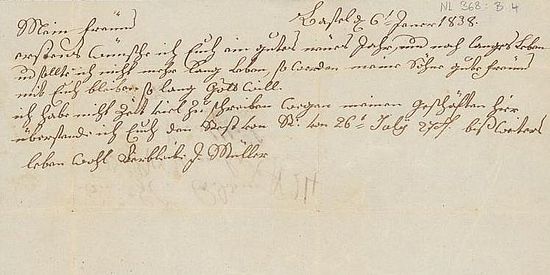 NL 368: B. 4
Bassel d 6t Janer 1838.
Mein freund
erstens wünsche ich Euch ein gutes neues Jahr, und noch langes Leben
und sollte ich nicht mehr lang Leben, so werden meine Söhne gute freund
mit Euch bleiben so lang Gott will.
ich habe nicht Zeit viel zu schreiben wegen meinen geschäften hier
übersende ich Euch den Rest von von 26t July bis weiters
leben wohl Verbleibe J. Müller